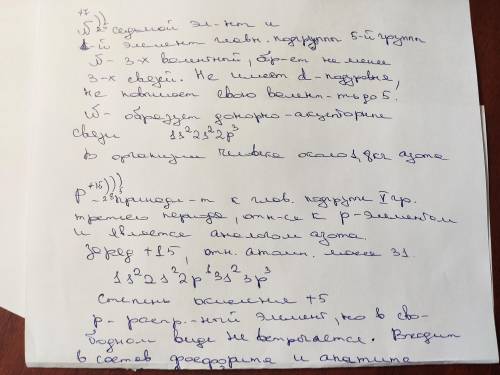 +7
N))
2 5 – седьмой эл-нт и
1-й элемент главн. подгруппы 5-й группы
N – 3-х валентный, обр-ет не менее
3-х связей. Не имеет d-подуровня,
не повышает свою валент-ть до 5.
N – образует донорно-акцепторные
связи 1s²2s²2p³
В организме человека около 1,8кг азота
P +15)))
– 2 8 5 принадл-т к глав. подгруппе V гр.
третьего периода, отн-ся к p-элементам
и является аналогом азота.
Заряд +15, отн. атомн. масса 31.
1s²2s²2p¹3s²3p³
Степень окисления +5
p – распр.-ный элемент, но в сво-
бодном виде не встречается. Входит
в состав фосфорита и апатита